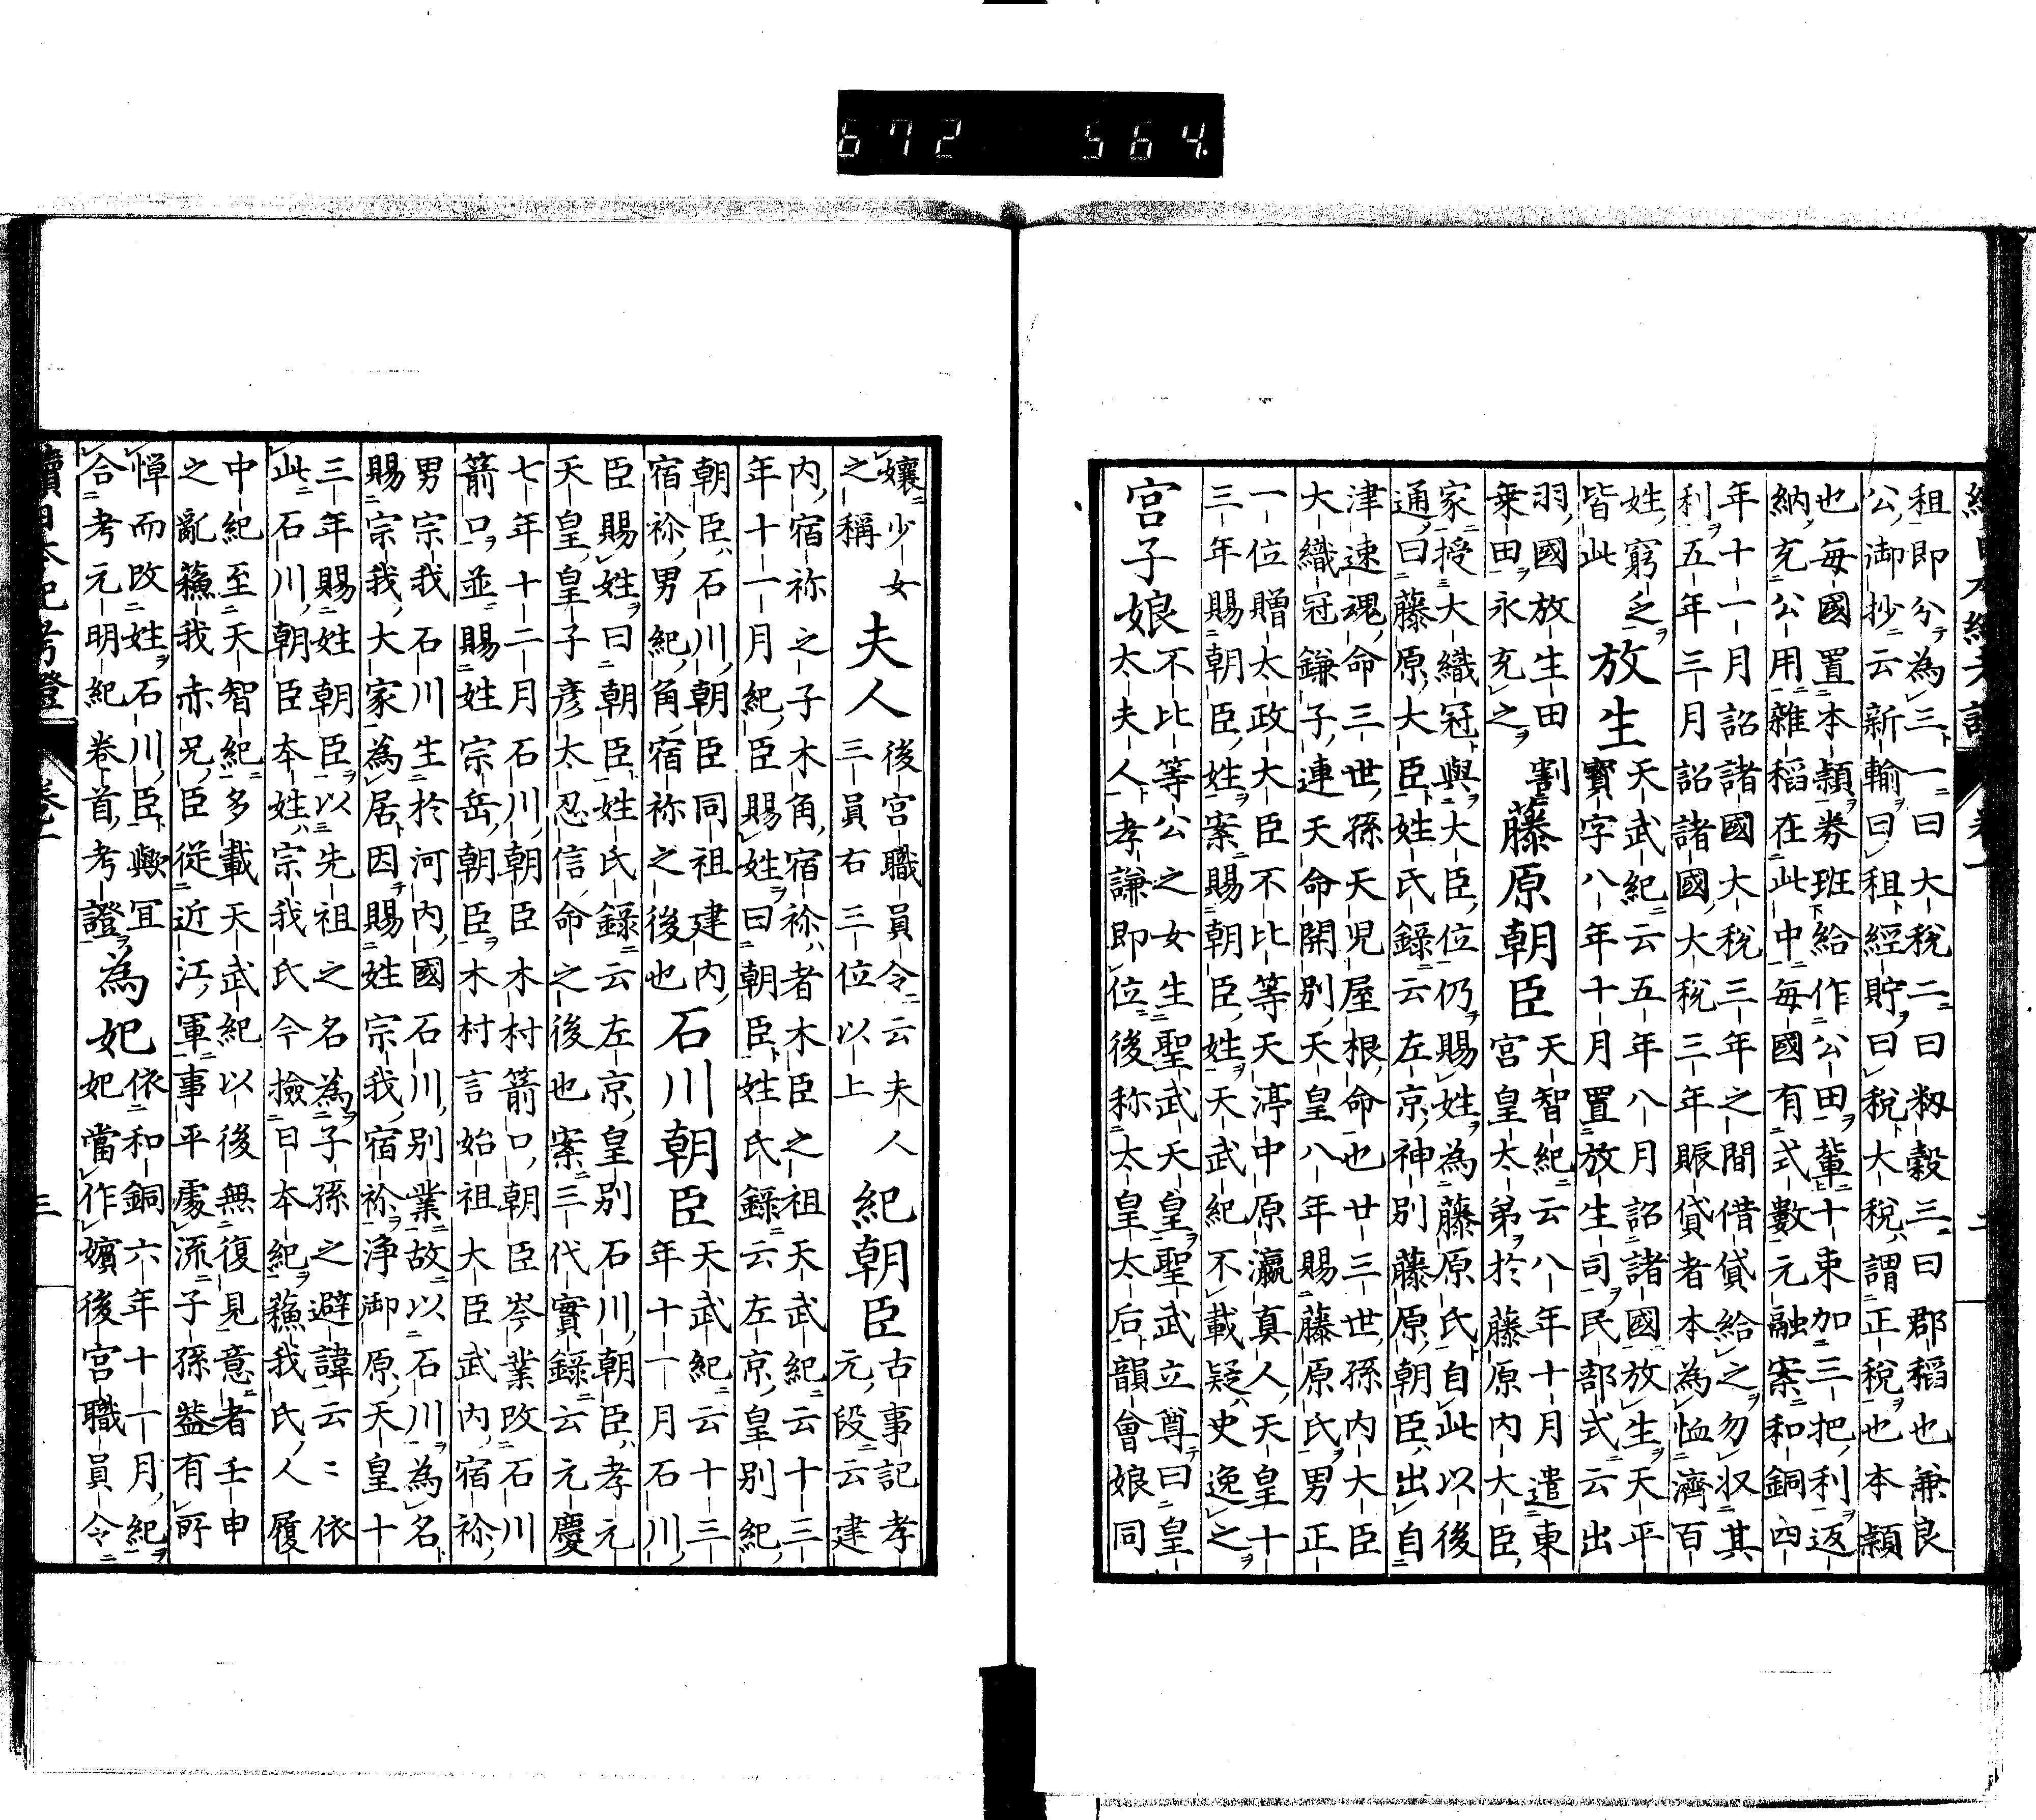 續日本紀考證 卷一 二
租即分為三一曰大税二曰籾穀三曰郡稻也兼良
公御抄云新輸曰租經貯曰税大税謂正税也本穎
也毎國置本穎券班給作公田輩十束加三把利返
納充公用雜稻在此中毎國有式數元融案和銅四
年十一月詔諸國大税三年之間借貸給之勿収其
利五年三月詔諸國大税三年賑貸者本為恤濟百
姓窮乏
皆此
放生
天武紀云五年八月詔諸國放生天平
寳字八年十月置放生司民部式云出
羽國放生田割
乗田永充之
藤原朝臣
天智紀云八年十月遣東
宮皇太弟於藤原内大臣
家授大織冠與大臣位仍賜姓為藤原氏自此以後
通曰藤原大臣姓氏録云左京神別藤原朝臣出自
津速魂命三世孫天児屋根命也廿三世孫内大臣
大織冠鎌子連天命開別天皇八年賜藤原氏男正
一位贈太政大臣不比等天渟中原瀛真人天皇十
三年賜朝臣姓案賜朝臣姓天武紀不載疑史逸之
宮子娘
不比等公之女生聖武天皇聖武立尊曰皇
太夫人孝謙即位後称太皇太后韻會娘同
孃少女
之稱
夫人
後宮職員令云夫人
三員右三位以上
紀朝臣
古事記孝
元段云建
内宿祢之子木角宿祢者木臣之祖天武紀云十三
年十一月紀臣賜姓曰朝臣姓氏録云左京皇別紀
朝臣石川朝臣同祖建内
宿祢男紀角宿祢之後也
石川朝臣
天武紀云十三
年十一月石川
臣賜姓曰朝臣姓氏録云左京皇別石川朝臣孝元
天皇皇子彦太忍信命之後也案三代實録云元慶
七年十二月石川朝臣木村箭口朝臣岑業改石川
箭口並賜姓宗岳朝臣木村言始祖大臣武内宿祢
男宗我石川生於河内國石川別業故以石川為名
賜宗我大家為居因賜姓宗我宿祢浄御原天皇十
三年賜姓朝臣以先祖之名為子孫之避諱云〻依
此石川朝臣本姓宗我氏今撿日本紀蘓我氏人履
中紀至天智紀多載天武紀以後無復見意者壬申
之亂蘓我赤兄臣従近江軍事平處流子孫蓋有所
憚而改姓石川臣歟宜依和銅六年十一月紀
合考元明紀卷首考證
為妃
妃當作嬪後宮職員令
續日本紀考證 卷一 三
672 564.